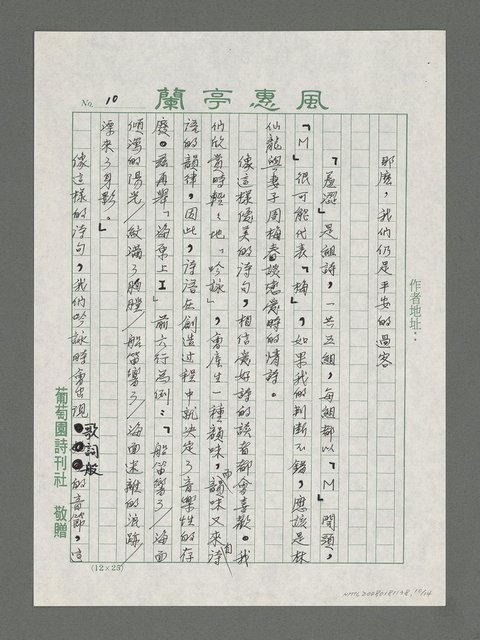 蘭亭惠風
No. 10
作者地址：
那麼，我們仍是平安的過客
「羞澀」是組詩，一共五組，每組都以「M」開頭，
「M」很可能代表「梅」，如果我的判斷不錯，應該是林
仙龍與妻子周梅春談戀愛時的情詩。
像這樣優美的詩句，相信愛好詩的讀者都會喜歡。我
們欣賞時輕輕地「吟詠」，會產生一種韻味，而韻味又來自詩
語的韻律，因此，詩語在創造過程中就決定了音樂性的存
廢。茲再舉「海票上I」前六行為例：「船笛響了／海面
傾瀉的陽光／紋滿了胸膛／船笛響了／海面迷離的浪跡／
漂來了身影。」
像這樣的詩句，我們吟詠時會出現歌詞般的音節，這
葡萄園詩刊社 敬贈
(12×25)